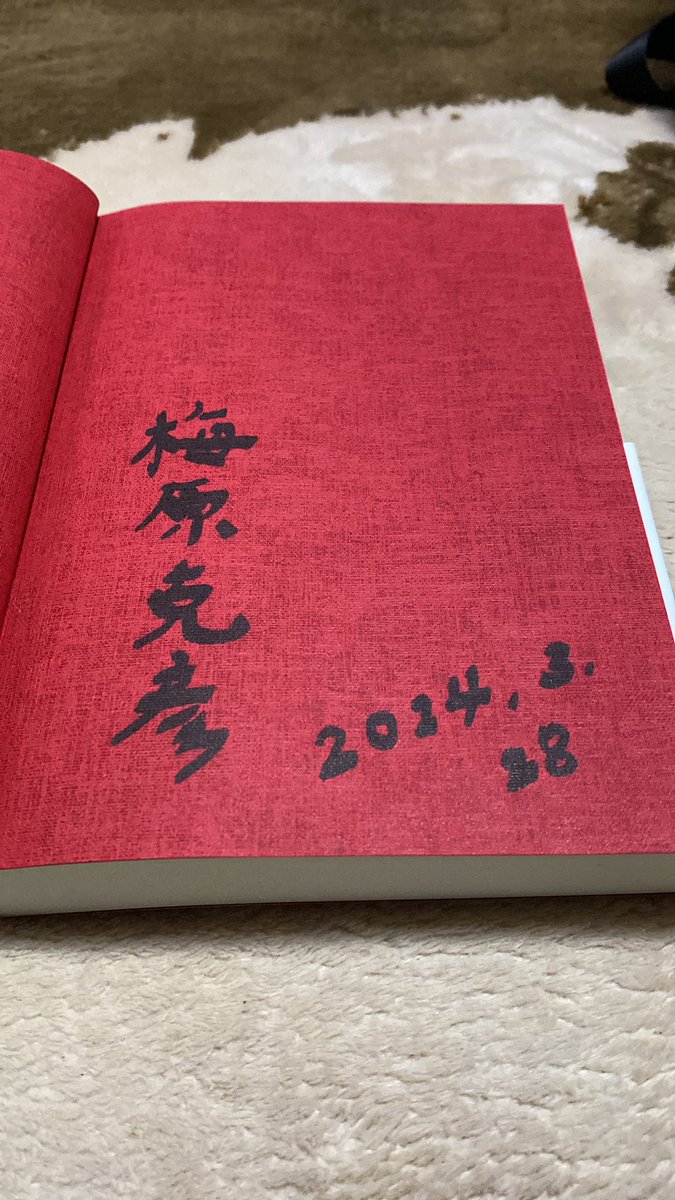 梅原克彦
2024.3.
28